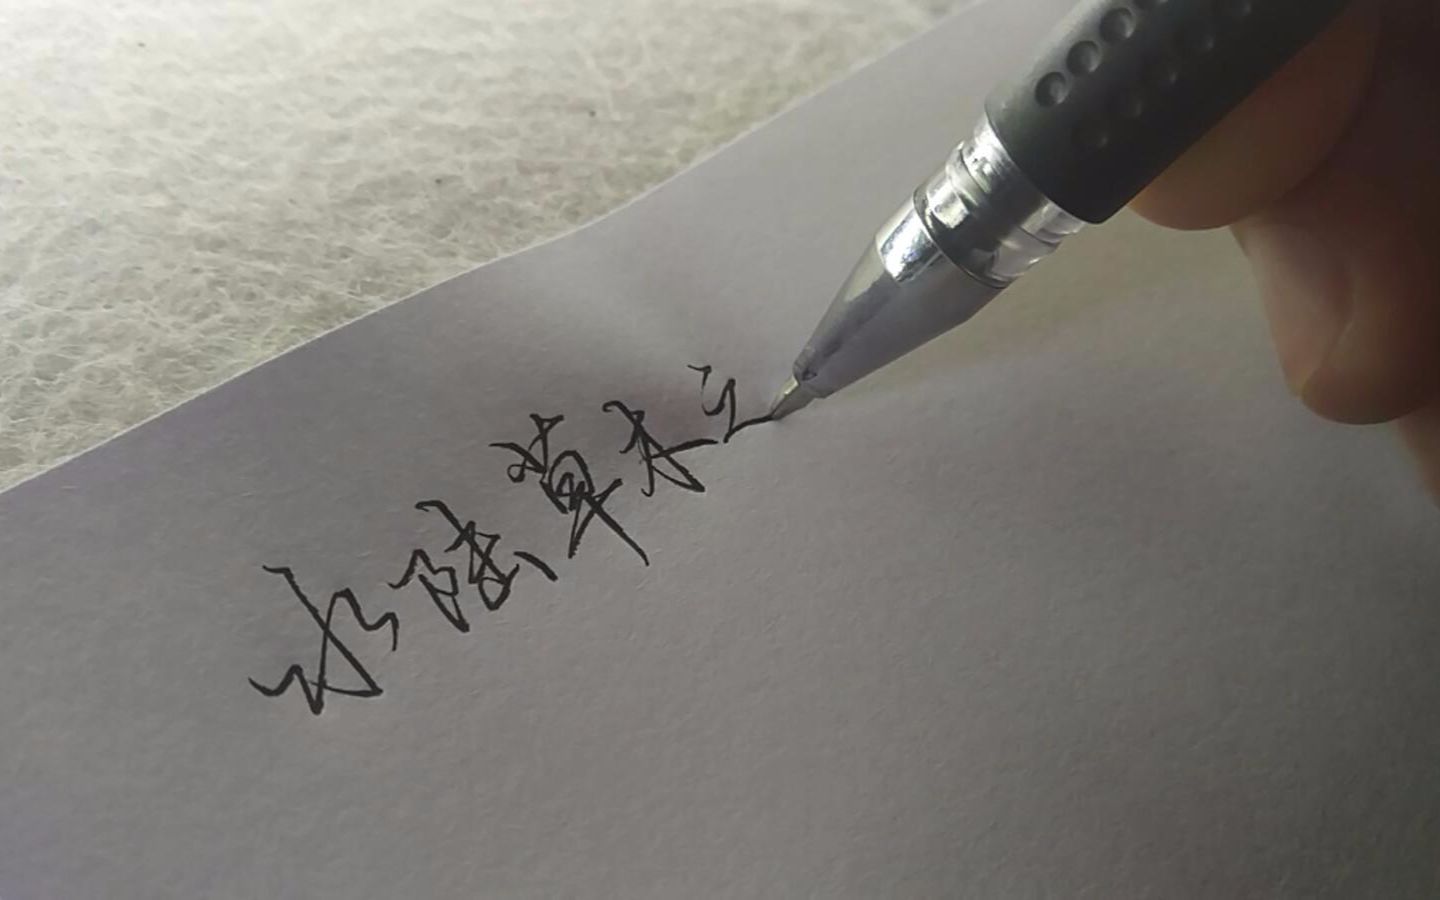 水陆草木之